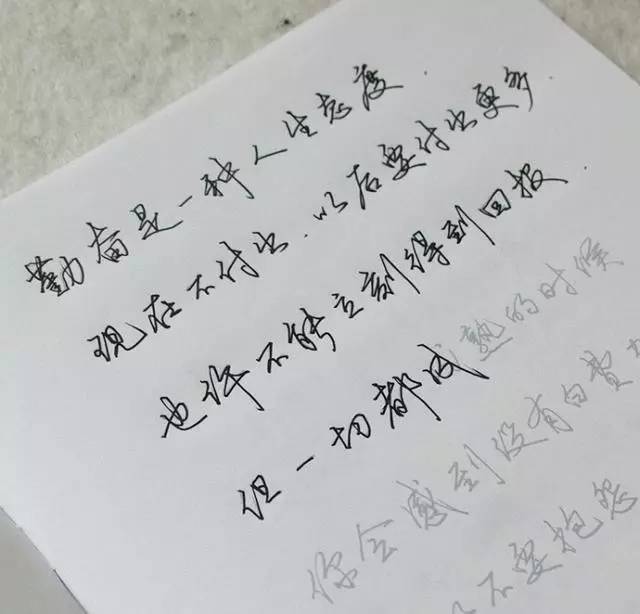 勤奋是一种人生态度.
现在不付出.以后要付出更多.
也许不能立刻得到回报
但一切都成熟的时候
你会感到没有白费力
不要抱怨